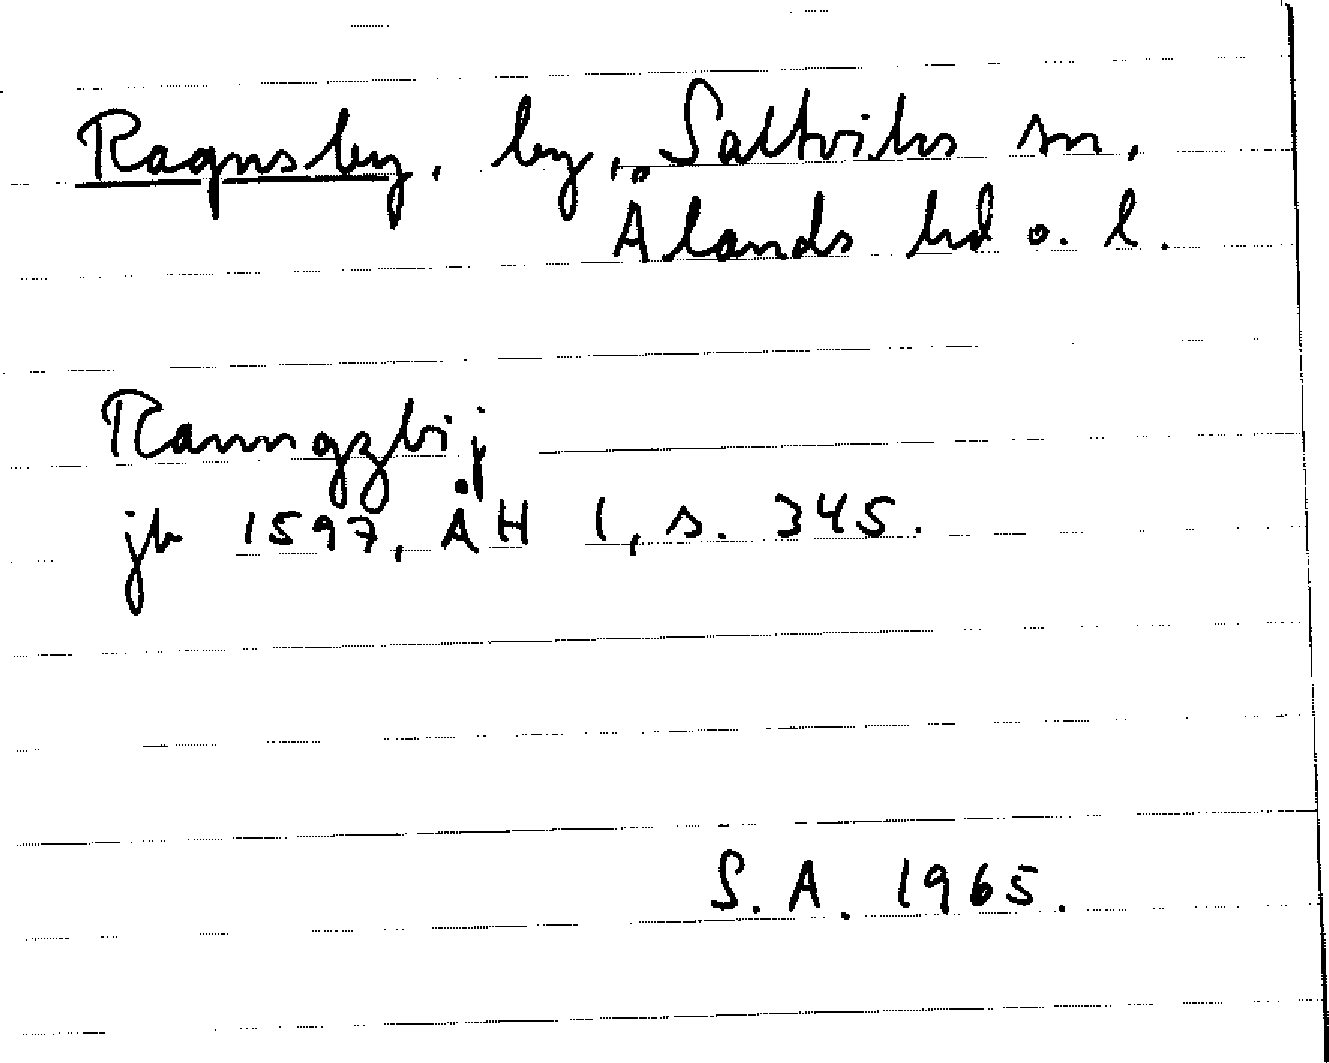 Ragnsby, by, Saltviks sn,
Ålands hd o. l.
Ranngzbij
jb 1597, ÅH 1, s. 345.
S. A. 1965.